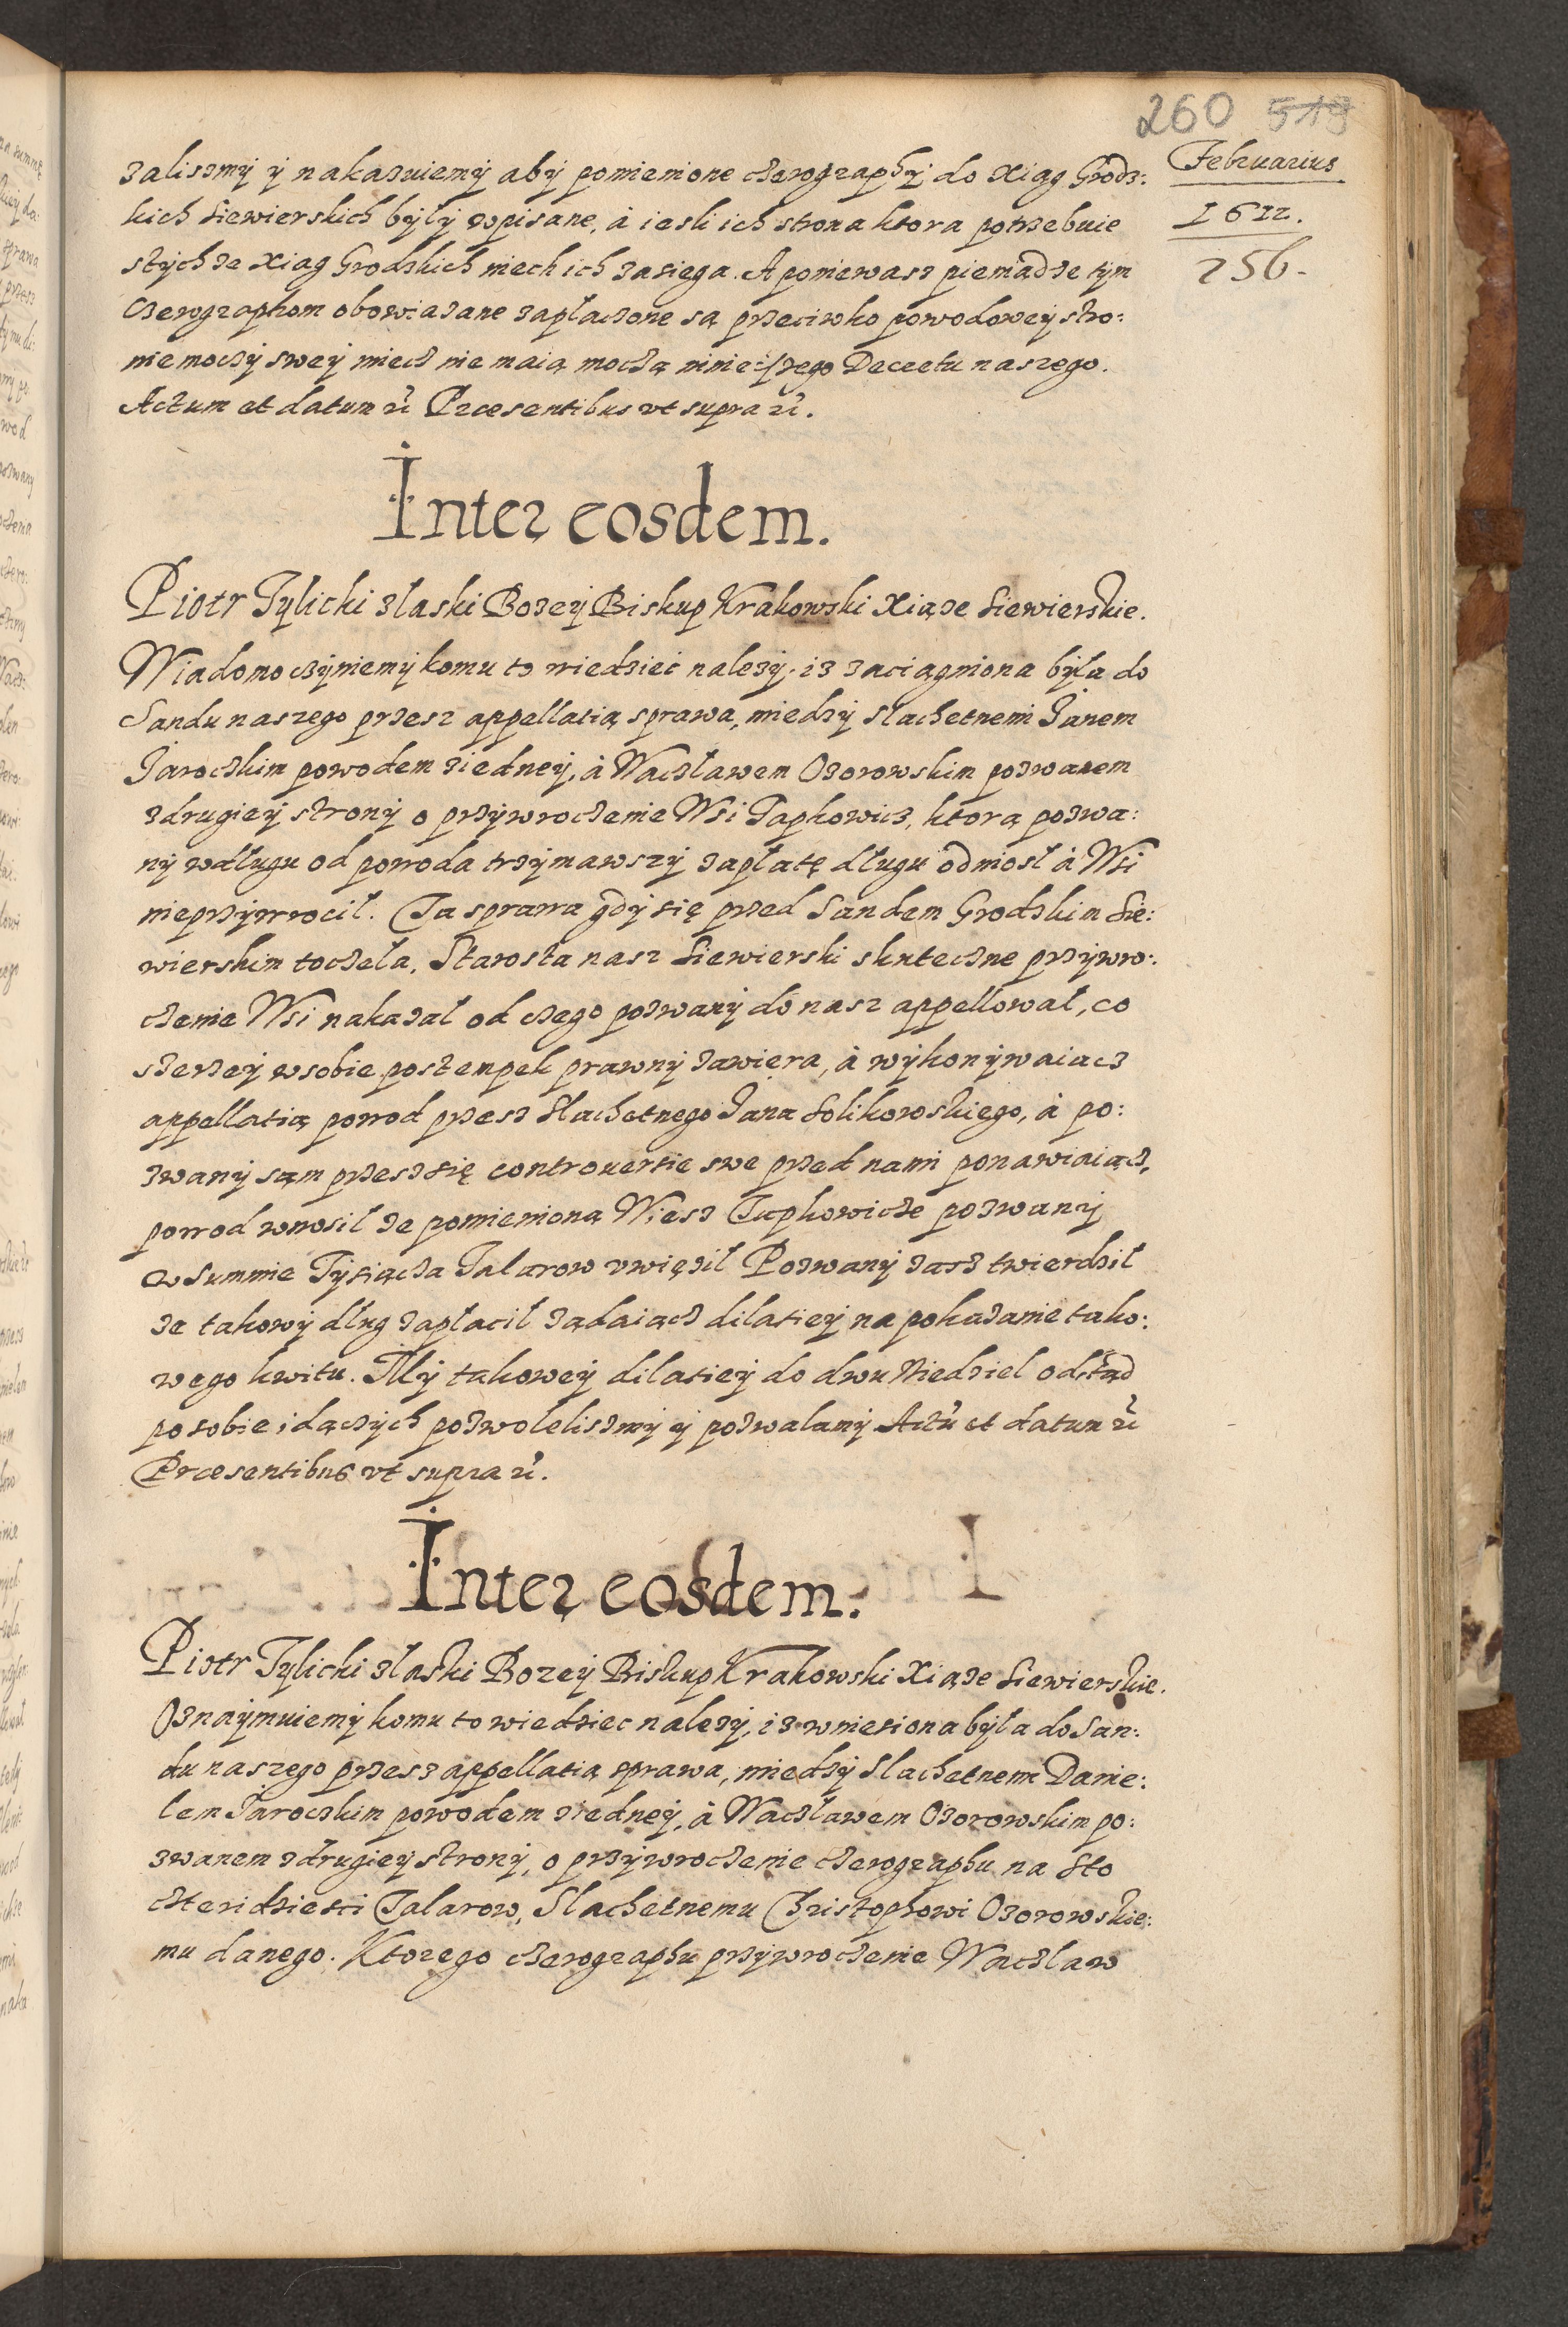 260 519
Februarius
1612.
256.
zalismy y nakazuiemy aby pomienione czerography do Xiąg Grodz:
kich Siewierskich były wpisane, à iesli ich strona ktora potrzebuie
stych ze Xiąg Grodzkich niech ich zasięga. A poniewasz pieniądze tym
Czerographom obowiazane zapłaczone są przeciwko powodowey stro:
nie moczy swey miecz nie maią moczą ninieiszego Decretu naszego.
Actum et datum rc̃ Præsentibus vt supra rc̃.
Inter eosdem.
Piotr Tylicki zlaski Bozey Biskup Krakowski Xiąze Siewierskie.
Wiadomo czyniemy komu to wiedzieć nalezy, iz zaciągniona była do
Sandu naszego przesz appellatią sprawa, miedzy slachetnemi Janem
Jaroczkim powodem ziedney, à Waczławem Ozorowskim pozwanem
zdrugiey strony o przywroczenie Wsi Tapkowicz, ktorą pozwa:
ny wdługu od powoda trzymawszy zapłatę długu odniosł à Wsi
nieprzywrocił. Ta sprawa gdy się przed Sandem Grodzkim Sie:
wierskim toczeła, Starosta nasz Siewierski skuteczne przywro:
czenie Wsi nakazał od czego pozwany do nasz appellował, co
szerzey wsobie postempek prawny zawiera, à wykonywaiacz
appellatią powod przesz Slachetnego Jana Solikowskiego, à po:
zwany sąm przesz się controuersie swe przed nami ponawiaiącz,
powod wnosił ze pomienioną Wiesz Tapkowicze pozwany
w Summie Tysiącza Talarow vwięził Pozwany zasz twierdził
ze takowy dług zapłacił ządaiącz dilatiey na pokazanie tako:
wego kwitu. My takowey dilatiey do dwu Niedziel odtąd
po sobie idączych pozwolelismy y pozwalamy Actũ et datum rc̃
Præsentibus vt supra rc̃.
Inter eosdem.
Piotr Tylicki zlaski Bozey Biskup Krakowski Xiąze Siewierskie.
Oznaymuiemy komu to wiedziec nalezy, iz wniesiona była do San:
du naszego przesz appellatią sprawa, miedzy slachetnem Danie:
lem Jaroczkim powodem ziedney, à Waczławem Ozorowskim po:
zwanem zdrugiey strony, o przywroczenie czerographu na Sto
czteridziesci Talarow, Slachetnemu Christophowi Ozorowskie:
mu danego. Ktorego czerographu przywroczenie Waczlaw